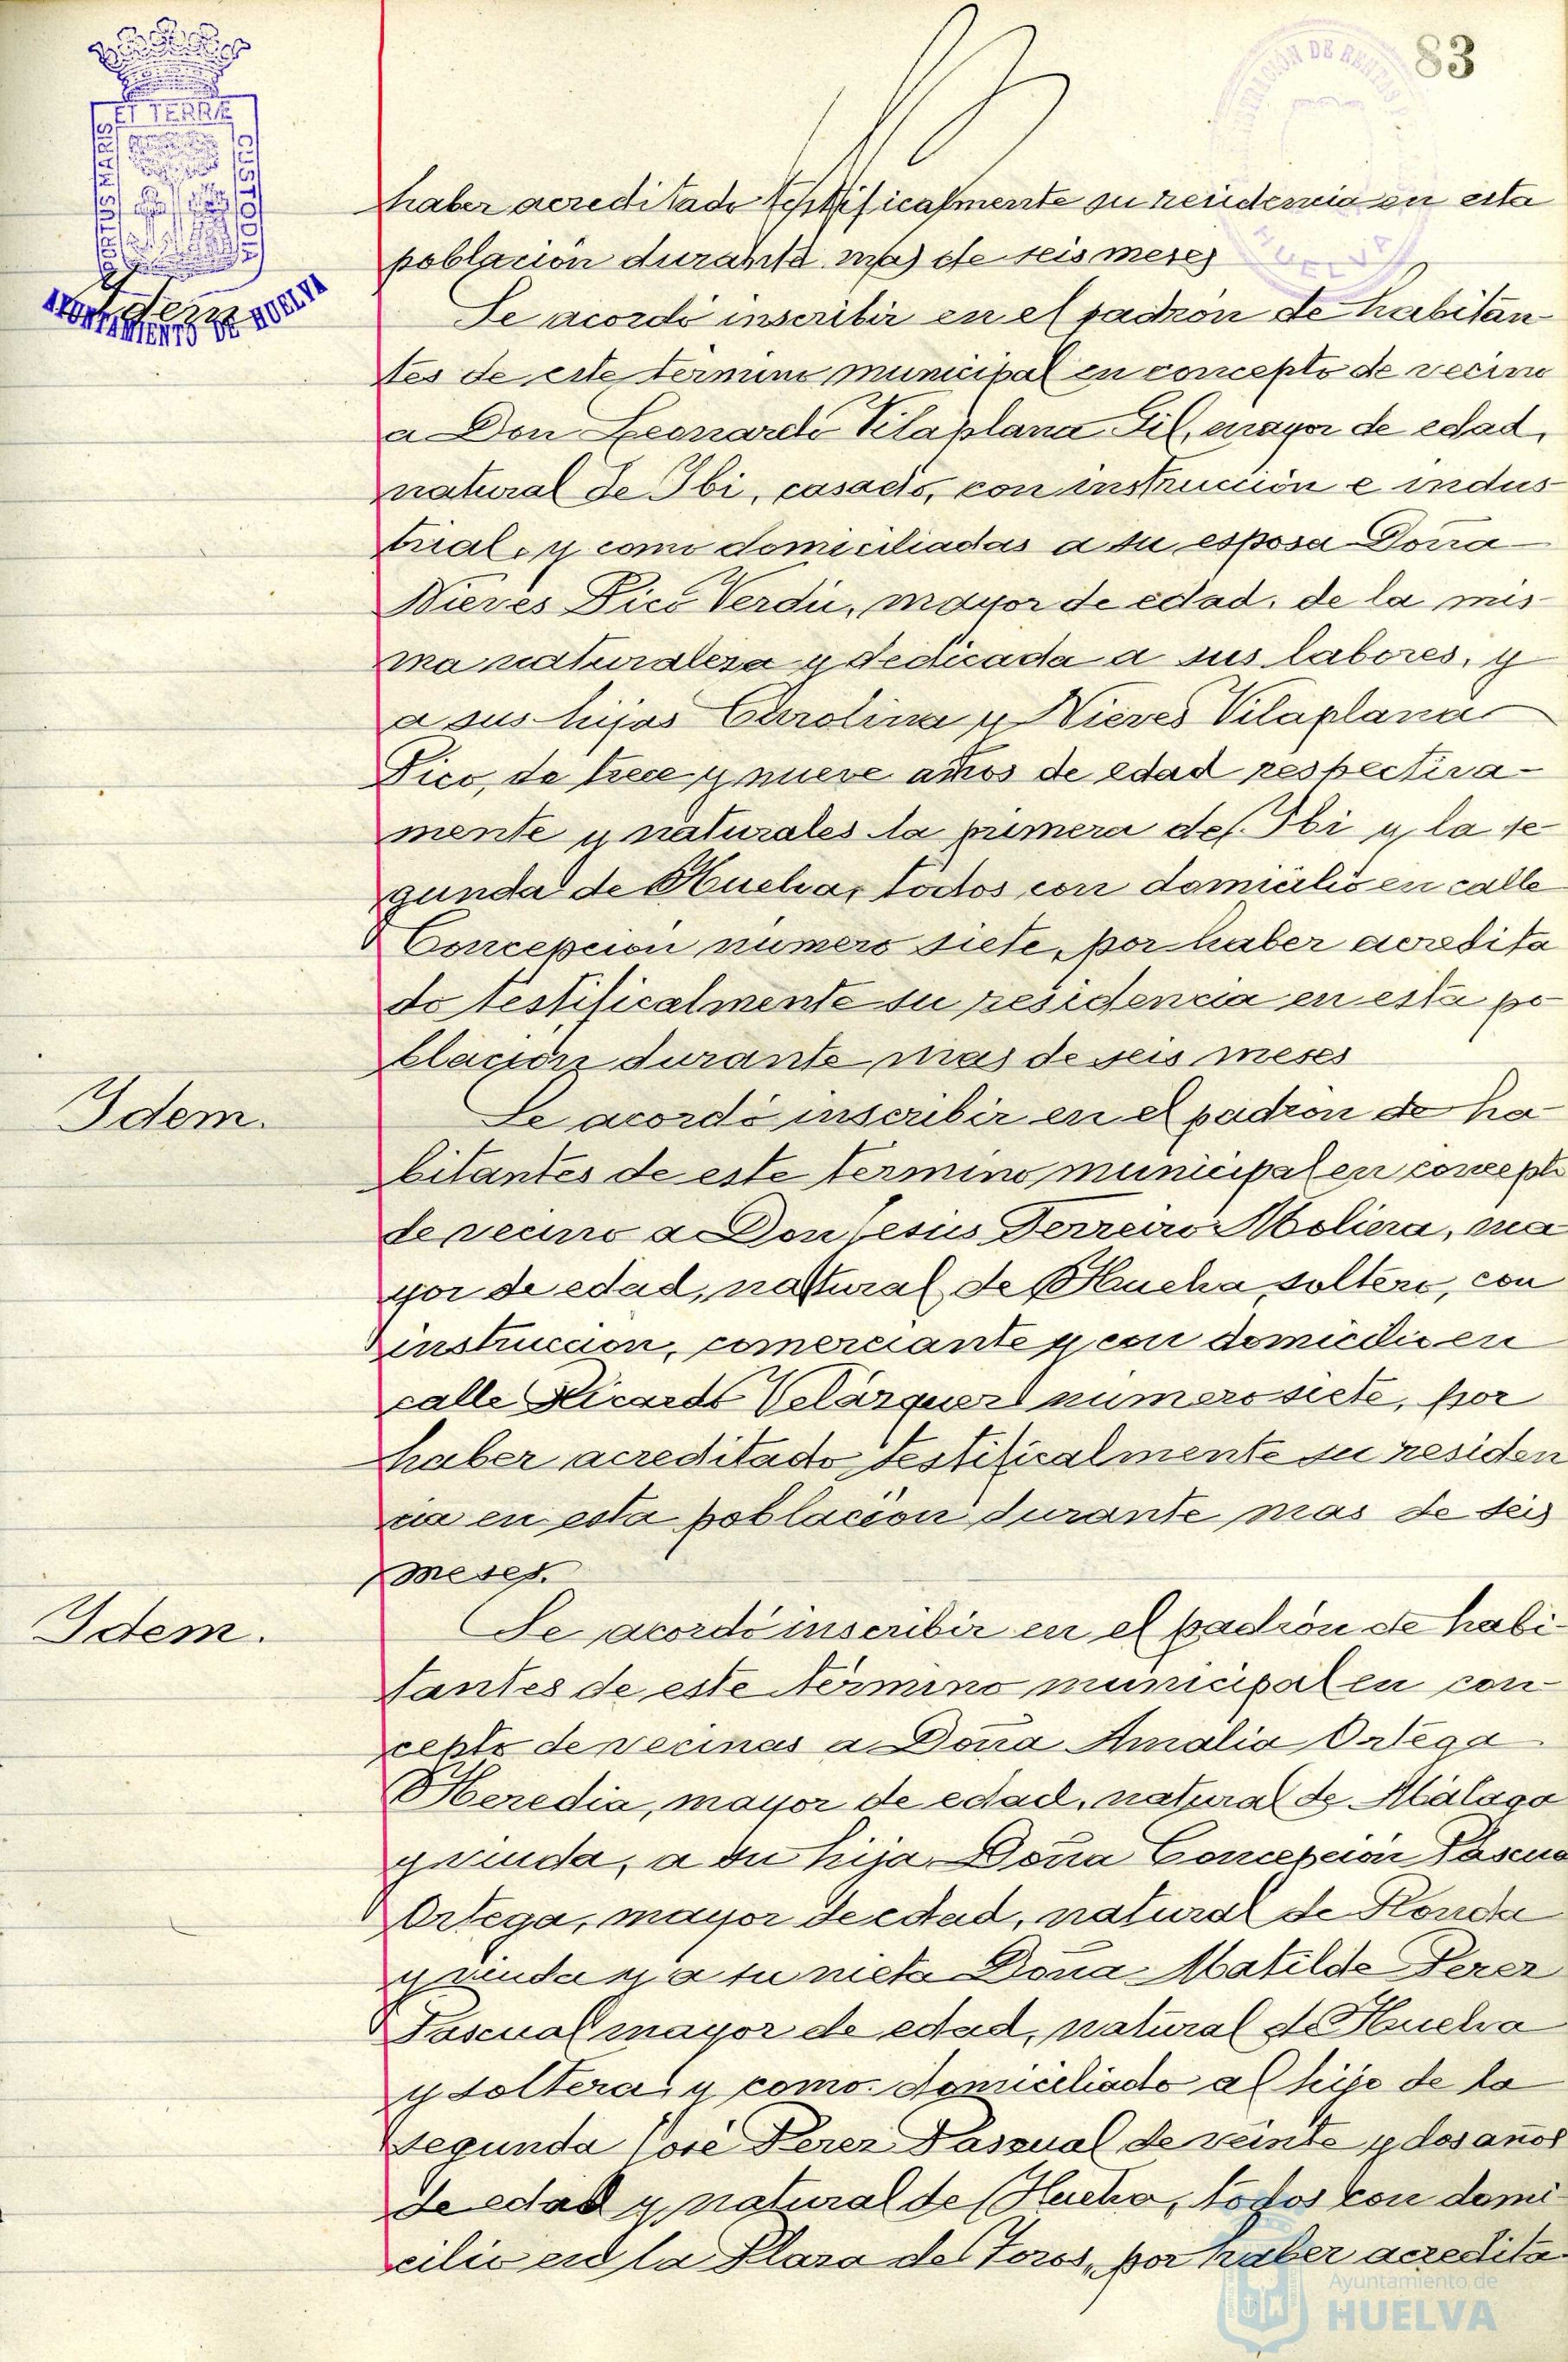 83
PORTUS MARIS ET TERRÆ CUSTODIA
AYUNTAMIENTO DE HUELVA
HUELVA
haber acreditado testificalmente su residencia en esta
poblacion durante mas de seis meses
Idem
Se acordó inscribir en el padrón de habitan-
tes de este termino municipal en concepto de vecino
a Don Leonardo Vilaplana Gil, mayor de edad,
natural de Ibi, casado, con instrucción e indus-
trial, y como domiciliadas a su esposa Doña
Nieves Picó Verdú, mayor de edad, de la mis-
ma naturaleza y dedicada a sus labores, y
a sus hijas Carolina y Nieves Vilaplana
Pico, de trece y nueve años de edad respectiva-
mente y naturales la primera de Ibi y la se-
gunda de Huelva, todos con domicilio en calle
Concepcion numero siete, por haber acredita
do testificalmente su residencia en esta po-
blación durante mas de seis meses
Idem.
Se acordó inscribir en el padrón de ha-
bitantes de este termino municipal en concepto
de vecino a Don Jesús Ferreiro Moliera, ma
yor de edad, natural de Huelva soltero, con
instruccion, comerciante y con domicilio en
calle Ricardo Velázquez numero siete, por
haber acreditado testificalmente su residen
cia en esta poblacion durante mas de seis
meses.
Idem.
Se acordó inscribir en el padrón de habi-
tantes de este término municipal en con-
cepto de vecinas a Doña Amalia Ortega
Heredia, mayor de edad, natural de Málaga
y viuda, a su hija Doña Concepción Pascua
Ortega, mayor de edad, natural de Ronda
y viuda y a su nieta Doña Matilde Perez
Pascual mayor de edad, natural de Huelva
y soltera, y como domiciliado al hijo de la
segunda José Perez Pascual de veinte y dos años
de edad y natural de Huelva, todos con domi-
cilio en la Plaza de Toros, por haber acredita-
Ayuntamiento de
HUELVA